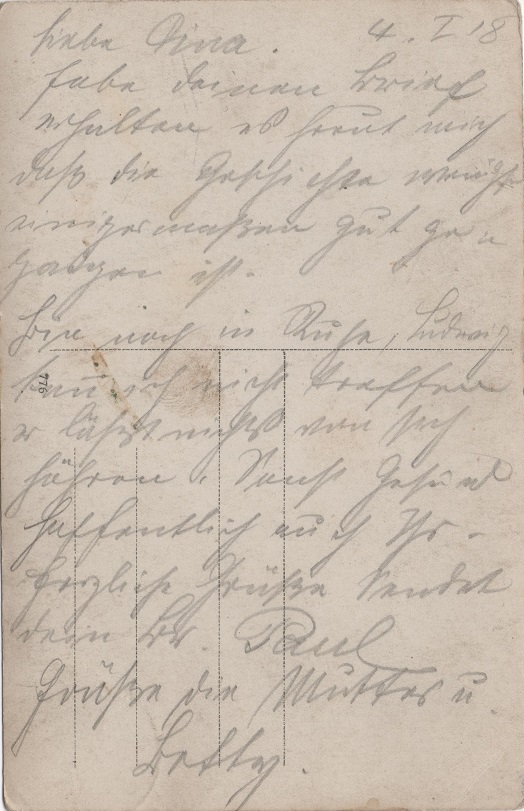 liebe Sina. 4. I 18
habe deinen Brief
erhalten es freut mich
daß die Geschichte wenigst
einigermaßen gut ge=
gangen ist.
Bin noch in Ruhe, Ludwig
kan ich nicht treffen
er läßt nichts von sich
höhren. Sonst Gesund
hoffentlich auch Ihr.
Herzliche Grüße Sendet
dein Br. Paul
Grüße die Mutter u.
Betty.
916